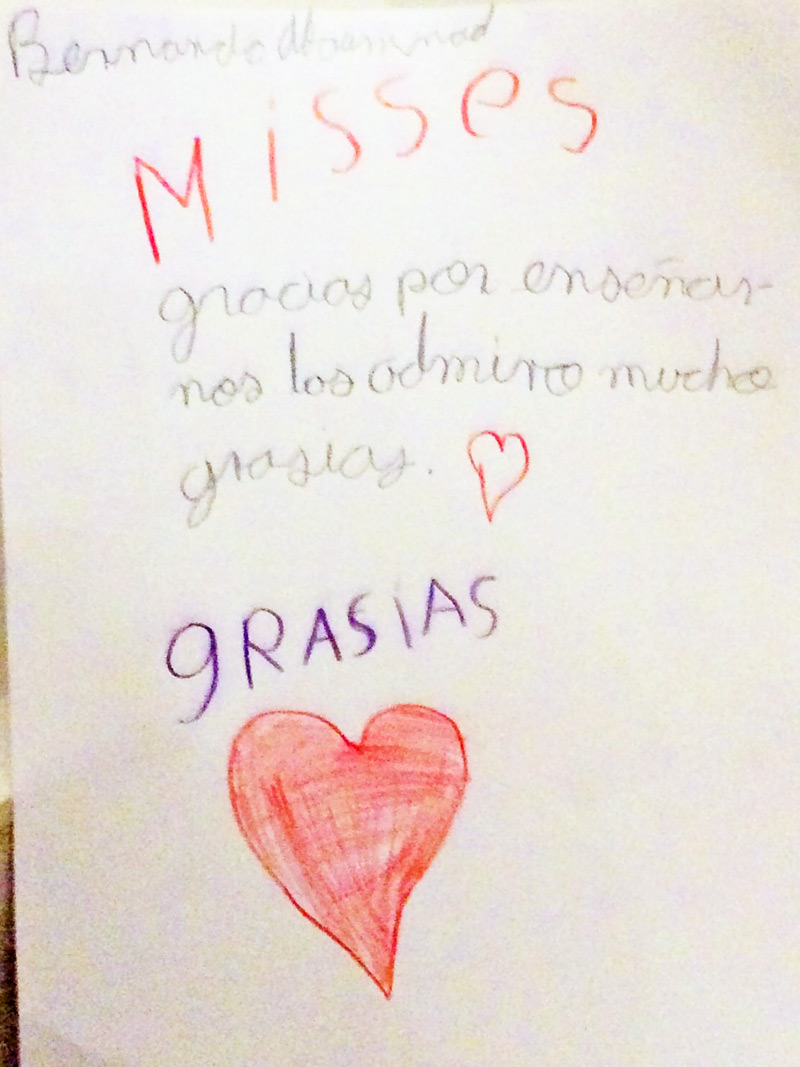 Bernardo
Misses
gracias por enseñar-
nos los admiro mucho
grasias.
gRASiAS